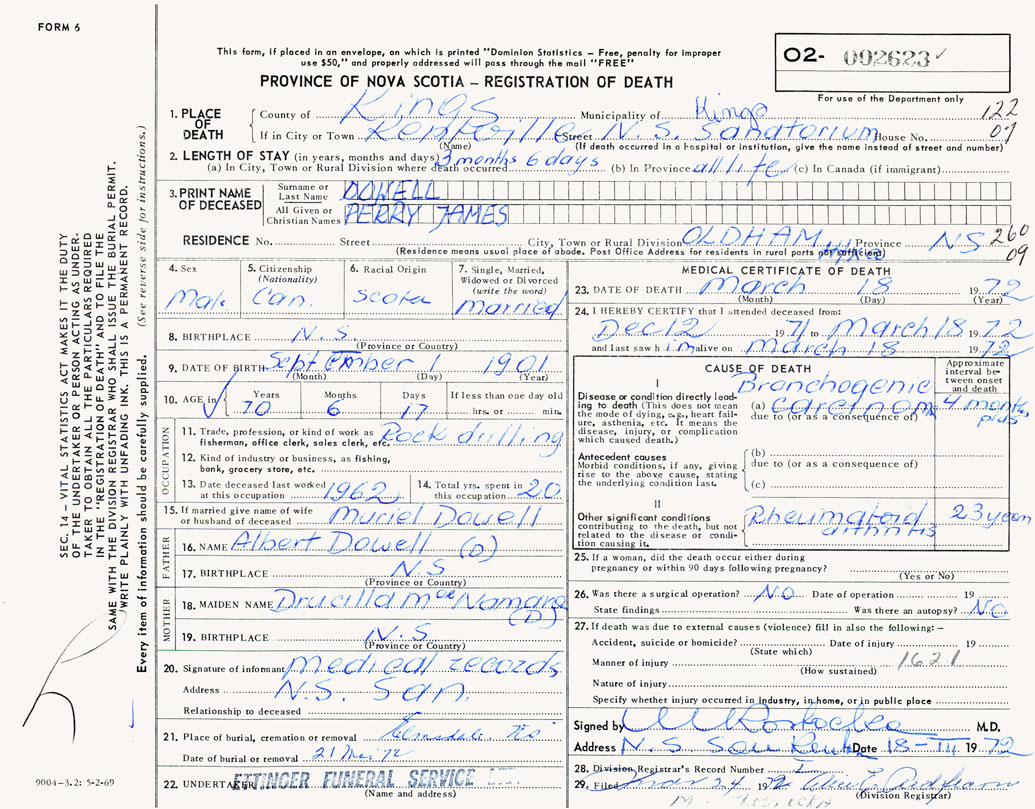 FORM 6
This form, if placed in an envelope, on which is printed "Dominion Statistics – Free, penalty for improper
use $50," and properly addressed will pass through the mail "FREE"
O2- 002623
PROVINCE OF NOVA SCOTIA – REGISTRATION OF DEATH
For use of the Department only
1. PLACE OF DEATH
County of Kings Municipality of Kings 122
If in City or Town Kentville Street N.S. Sanatorium House No. 07
(Name) (If death occurred in a hospital or institution, give the name instead of street and number)
2. LENGTH OF STAY (in years, months and days)
(a) In City, Town or Rural Division where death occurred 3 months 6 days (b) In Province all life (c) In Canada (if immigrant)
3. PRINT NAME OF DECEASED
Surname or Last Name DOWELL
All Given or Christian Names PERRY JAMES
RESIDENCE No. Street City, Town or Rural Division OLDHAM Province NS 260
09
(Residence means usual place of abode. Post Office Address for residents in rural parts not sufficient)
4. Sex
Male
5. Citizenship
(Nationality)
Can.
6. Racial Origin
Scotch
7. Single, Married,
Widowed or Divorced
(write the word)
married
8. BIRTHPLACE N.S.
(Province or Country)
9. DATE OF BIRTH September 1 1901
(Month) (Day) (Year)
10. AGE in
Years Months Days If less than one day old
70 6 17 hrs. or min.
OCCUPATION
11. Trade, profession, or kind of work as
fisherman, office clerk, sales clerk, etc. Rock drilling
12. Kind of industry or business, as fishing,
bank, grocery store, etc.
13. Date deceased last worked
at this occupation 1962
14. Total yrs. spent in
this occupation 20
15. If married give name of wife
or husband of deceased Muriel Dowell
FATHER
16. NAME Albert Dowell (D)
17. BIRTHPLACE N.S
(Province or Country)
MOTHER
18. MAIDEN NAME Drucilla MacNamara
(D)
19. BIRTHPLACE N.S
(Province or Country)
20. Signature of informant medical records
Address N.S. San.
Relationship to deceased
21. Place of burial, cremation or removal
Date of burial or removal 21 Mar 72
22. UNDERTAKER ETTINGER FUNERAL SERVICE
(Name and address)
MEDICAL CERTIFICATE OF DEATH
23. DATE OF DEATH March 18 1972
(Month) (Day) (Year)
24. I HEREBY CERTIFY that I attended deceased from:
Dec 12 1971 to March 18 1972
and last saw him alive on march 18 1972
CAUSE OF DEATH
Approximate
interval be-
tween onset
and death
I
Disease or condition directly lead-
ing to death (This does not mean
the mode of dying, e.g., heart fail-
ure, asthenia, etc. It means the
disease, injury, or complication
which caused death.)
Bronchogenic
(a) carcinoma 4 months
plus
due to (or as a consequence of)
Antecedent causes
Morbid conditions, if any, giving
rise to the above cause, stating
the underlying condition last.
(b)
due to (or as a consequence of)
(c)
II
Other significant conditions
contributing to the death, but not
related to the disease or condi-
tion causing it.
Rheumatoid 23 years
arthritis
25. If a woman, did the death occur either during
pregnancy or within 90 days following pregnancy?
(Yes or No)
26. Was there a surgical operation? NO Date of operation 19
State findings Was there an autopsy? NO
27. If death was due to external causes (violence) fill in also the following: –
Accident, suicide or homicide? Date of injury 19
(State which)
Manner of injury 162.1
(How sustained)
Nature of injury
Specify whether injury occurred in industry, in home, or in public place
Signed by M.D.
Address N.S. San Date 18-III 1972
28. Division Registrar's Record Number
29. Filed 1972
(Division Registrar)
SEC. 14 – VITAL STATISTICS ACT MAKES IT THE DUTY
OF THE UNDERTAKER OR PERSON ACTING AS UNDER-
TAKER TO OBTAIN ALL THE PARTICULARS REQUIRED
IN THE "REGISTRATION OF DEATH" AND TO FILE THE
SAME WITH THE DIVISION REGISTRAR WHO SHALL ISSUE THE BURIAL PERMIT.
WRITE PLAINLY WITH UNFADING INK. THIS IS A PERMANENT RECORD.
Every item of information should be carefully supplied. (See reverse side for instructions.)
9004-3.2: 5-2-69